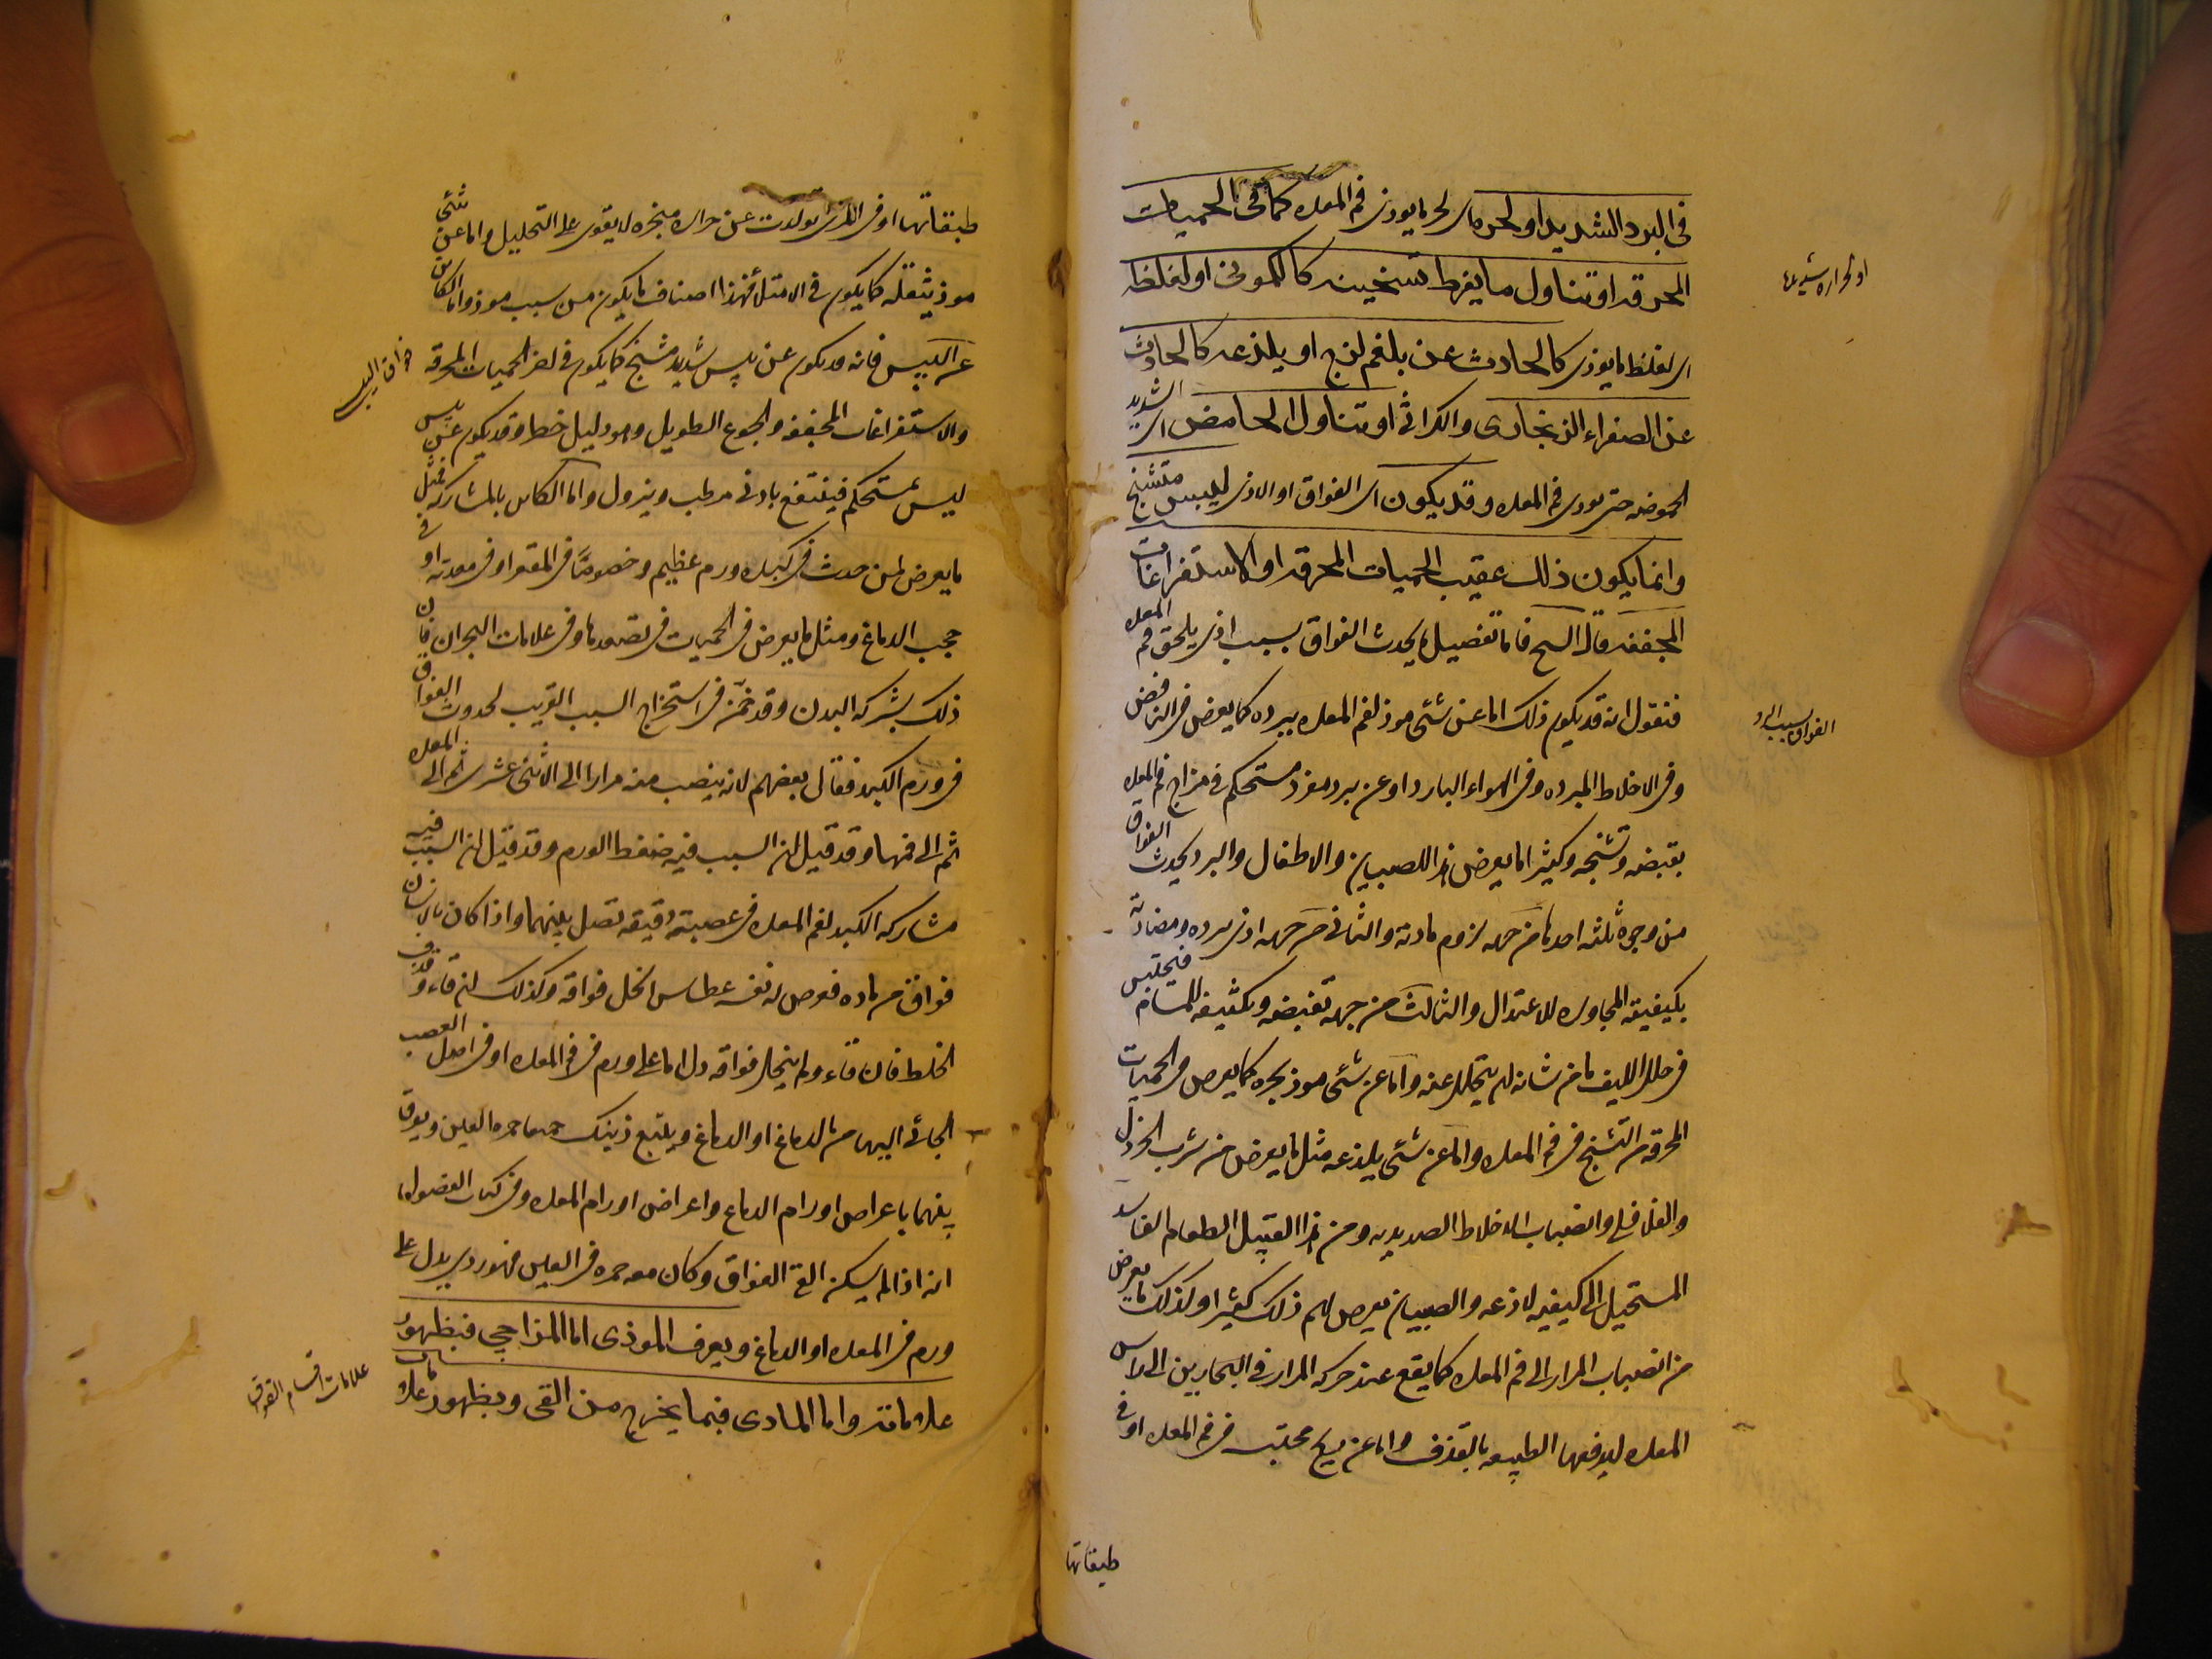 فى البرد الشديد او لحره اى لحر ما يوذى فم المعده كما فى الحميات
المحرقه او تناول ما يفرط تسخينه كالكمونى او لغلظه
اى لغلظ ما يوذى كالحادث عن بلغم لزج او يلذعه كالحادث
عن الصفراء الزنجارى والكراثى او تناول الحامض اى الشديد
الحموضه حتى يوذى فم المعده وقد يكون اى الفواق او الاذى لليبس متشنج
وانما يكون ذلك عقيب الحميات المحرقه او الاستفراغات
المجففه قال الشيخ فاما تفصيل ما يحدث الفواق بسبب اذى يلحق فم المعده
فنقول انه قد يكون ذلك اما عن شئ موذ لفم المعده ببرده كما يعرض فى النافض
وفى الاخلاط المبرده وفى الهواء البارد او عن برد مفرد مستحكم فى مزاج فم المعده
يقبضه وتشنجه وكثيرا ما يعرض هذا للصبيان والاطفال والبرد يحدث الفواق
من وجوه ثلثه احدها من جهه لزوم مادته والثانى من جهه اذى برده ومضادته
بكيفيته المجاوره للاعتدال والثالث من جهه تقبضه وتكثيفه للمسام فيحتبس
فى خلل الليف ما من شانه ان يتحلل عنه واما عن شئ موذ بحره كما يعرض فى الحميات
المحرقه من التشنج فى فم المعده واما عن شئ يلذعه مثل ما يعرض من شرب الخردل
والفلافلى وانصباب الاخلاط الصديديه ومن هذا القبيل الطعام الفاسد
المستحيل الى كيفيه لاذعه والصبيان يعرض لهم ذلك كثيرا وكذلك ما يعرض
من انصباب المرار الى فم المعده كما يقع عند حركه المرار فى البحارين الى راس
المعده ليدفعها الطبيعه بالقذف واما عن ريح محتبسه فى فم المعده او فى
طبقاتها
او لحراره شديده
الفواق بسبب البرد
طبقاتها او فى المرى تولدت عن حراره مبخره لا يقوى على التحليل واما عن شئ
موذ بثقله كما يكون فى الامتلاء فهذا اصناف ما يكون من سبب موذ واما الكائن
عن اليبس فانه قد يكون عن يبس شديد مشنج كما يكون فى الحميات المحرقه
والاستفراغات المجففه والجوع الطويل وهو دليل خطر وقد يكون عن يبس
ليس بمستحكم فينتفع بادنى مرطب ويزول واما الكائن بالمشاركه فمثل
ما يعرض لمن حدث فى كبده ورم عظيم وخصوصا فى المقعر او فى معدته او فى
حجب الدماغ ومثل ما يعرض فى الحميات فى تصعدها وفى علامات البحران فان
ذلك بشركه البدن وقد خمن فى استخراج السبب القريب لحدوث الفواق
فى ورم الكبد فقال بعضهم لانه ينصب منه مرارا الى الاثنى عشرى ثم الى المعده
ثم الى فمها وقد قيل ان السبب فيه ضغط الورم وقد قيل ان السبب فيه
مشاركه الكبد لفم المعده فى عصبة دقيقه تصل بينهما واذا كان بالانسان
فواق من ماده فعرض له نفسه عطاس انحل فواقه وكذلك ان قاء وقذف
الخلط فان قاء ولم ينحل فواقه دل اما على ورم فى فم المعده او فى اصل العصب
الجائى اليها من الدماغ او الدماغ ويتبع ذينك جميعا حمره العين ويفرق
بينهما باعراض اورام الدماغ واعراض اورام المعده وفى كتاب الفصول
انه اذا لم يسكن القئ الفواق وكان معه حمره فى العين فهو ردى يدل على
ورم فى المعده او الدماغ ويعرف الموذى اما المزاجى فبظهور
علاماته واما المادى فبما يخرج من القى وبظهور علامات
فواق اليبس
علامات اقسام الفواق